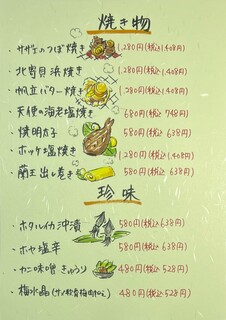 焼き物
・サザエのつぼ焼き 1,280円(税込1,408円)
・北寄貝浜焼き 1,280円(税込1,408円)
・帆立バター焼き 1,280円(税込1,408円)
・天使の海老塩焼き 680円(税込748円)
・焼明太子 580円(税込638円)
・ホッケ塩焼き 1,280円(税込1,408円)
・蘭王出し巻き 580円(税込638円)
珍味
・ホタルイカ沖漬 580円(税込638円)
・ホヤ塩辛 580円(税込638円)
・カニ味噌きゅうり 480円(税込528円)
・梅水晶(サメ軟骨梅肉和え) 480円(税込528円)